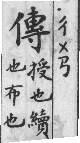 傳
．ㄔㄨㄢ
授也續
也布也